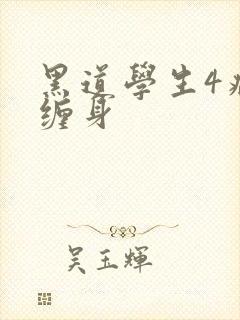 黑道學生4
缠身
吴玉輝